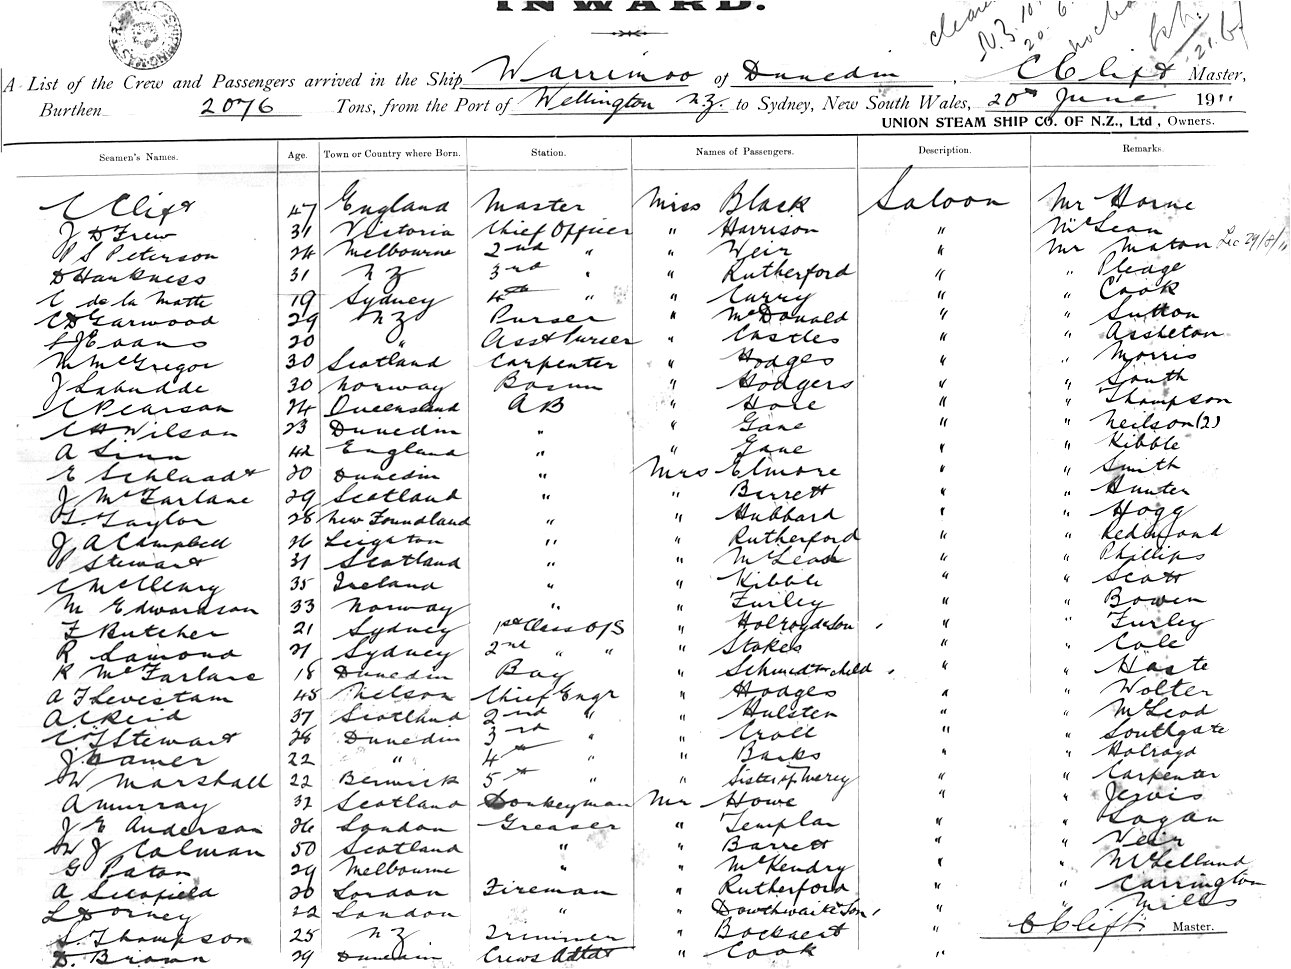 INWARD.
A List of the Crew and Passengers arrived in the Ship Warrimoo of Dunedin, C Clift Master,
Burthen 2076 Tons, from the Port of Wellington N.Z. to Sydney, New South Wales, 20th June 1911
UNION STEAM SHIP CO. OF N.Z., Ltd, Owners.
Seamen's Names. Age. Town or Country where Born. Station. Names of Passengers. Description. Remarks.
C Clift 47 England Master Miss Black Saloon Mr Horne
J D Frew 31 Victoria Chief Officer " Harrison " McLean
P S Peterson 24 Melbourne 2nd " " Weir " Mr Maton
D Harkness 31 NZ 3rd " " Rutherford " " Pledge
C de la Motte 19 Sydney 4th " " Curry " " Cook
C D Garwood 29 NZ Purser " McDonald " " Sutton
Evans 20 " Asst Purser " Castles " " Assheton
M McGregor 30 Scotland Carpenter " Hodges " " Morris
J 30 Norway Bosun " Hodgers " " South
C Pearson 24 Queensland AB " Hore " " Thompson
C H Wilson 23 Dunedin " " Gane " " Neilson (2)
A Sinn 42 England " " Gane " " Kibble
E 20 Dunedin " Mrs Elmore " " Smith
J McFarlane 29 Scotland " " Birrett " " Hunter
Taylor 28 New Foundland " " Hubbard " " Hogg
J A Campbell 26 Leighton " " Rutherford " "
P Stewart 31 Scotland " " McLeod " " Phillips
C McClenry 35 Ireland " " Kibble " " Scott
M Edwardson 33 Norway " " Furley " " Bowen
F Butcher 21 Sydney 1st Class O/S " Holroyd & Son " " Furley
R Lamond 21 Sydney 2nd " " " Stokes " " Cole
R McFarlane 18 Dunedin Boy " Schmidt & child " " Haste
A F Levestam 45 Nelson Chief Engr " Hodges " " Wolter
A C Reid 37 Scotland 2nd " " Hulsten " " McLeod
C J Stewart 28 Dunedin 3rd " " Croll " " Southgate
J 22 " 4th " " Banks " " Holroyd
W Marshall 22 Berwick 5th " " Sister of Mercy " " Carpenter
A Murray 32 Scotland Donkeyman Mr Howe " " Jervis
J E Anderson 26 London Greaser " Templar " " Logan
W J Colman 50 Scotland " " Barrett " " Weir
G Paton 29 Melbourne " " McKendry " " McLelland
A Schofield 20 London Fireman " Rutherford " " Carrington
L Dorney 22 London " " Dowthwaite & Son " " Mills
S. Thompson 25 NZ Trimmer " Bockaert " C Clift Master.
D. Brown 29 Dunedin Crews Attdt " Cook "